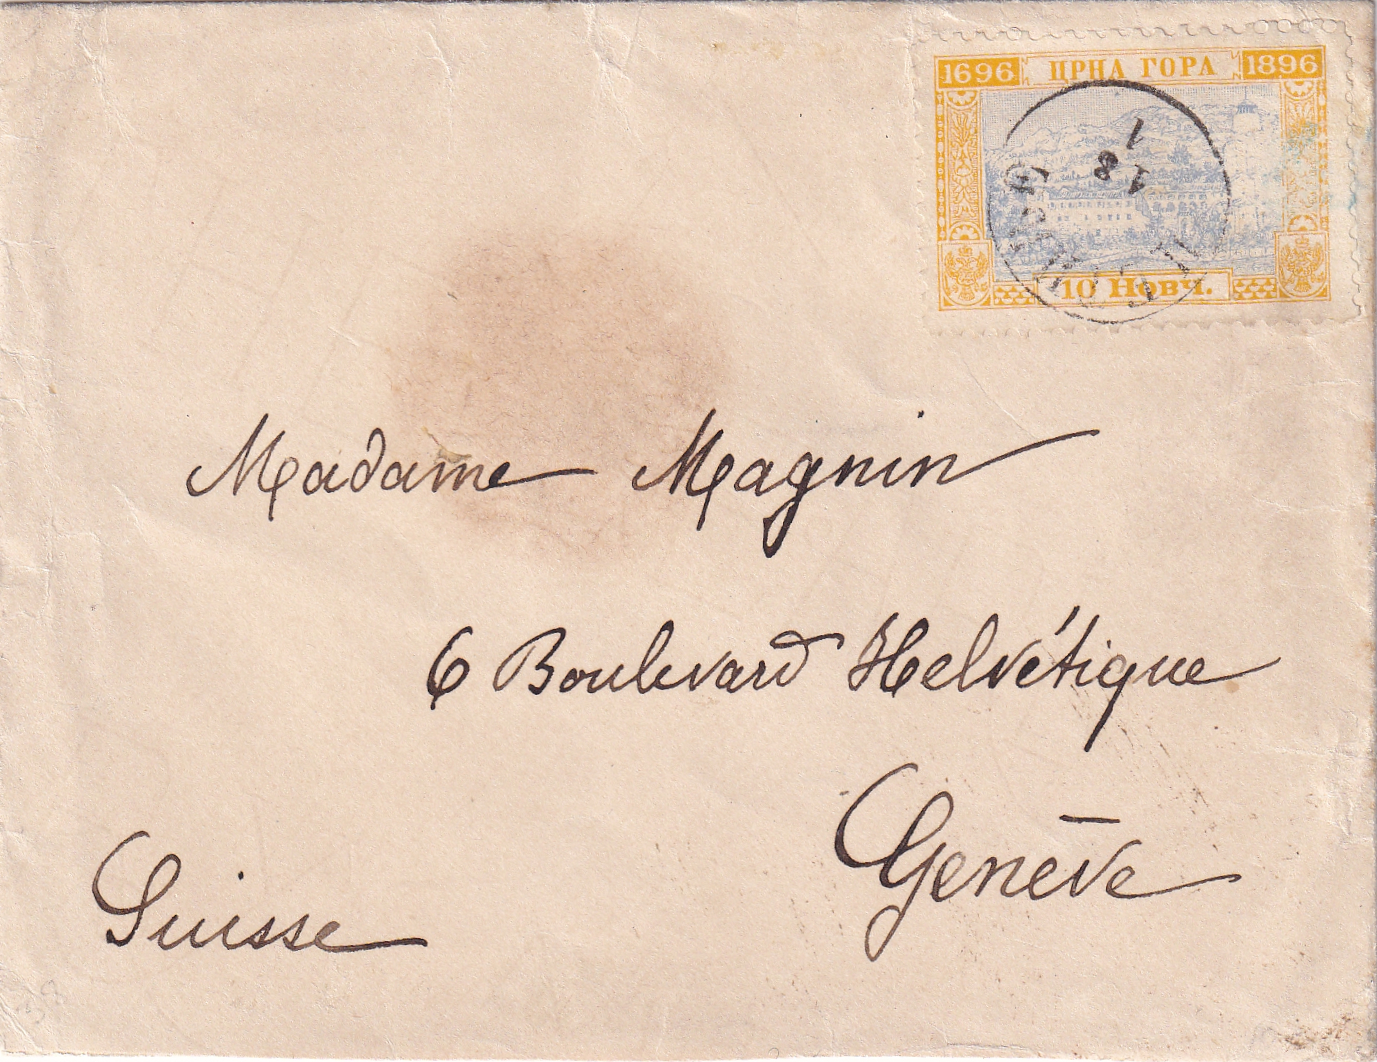 1696 ЦРНА ГОРА 1896
10 Новч.
18
1
Madame Magnin
6 Boulevard Helvétique
Genève
Suisse